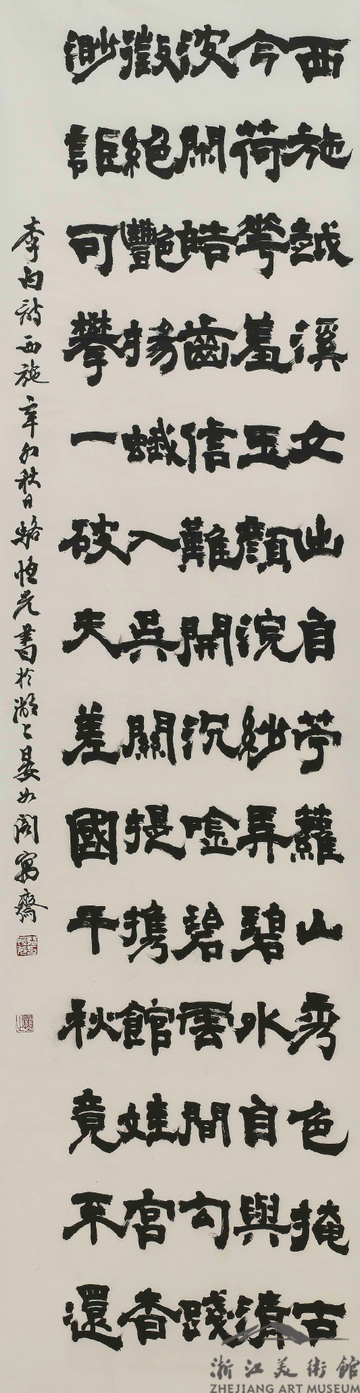 西施越溪女出自苧蘿山秀色掩古
今荷華羞玉顏浣紗弄碧水自與清
波開皓齒信難開沉吟碧雲間勾踐
徵絕豔揚蛾入吳關提攜館娃宮杳
渺詎可攀一破夫差國千秋竟不還
李白詩西施辛卯秋日駱恒光書於湖上晏如閣寓齋
浙江美術館
ZHEJIANG ART MUSEUM